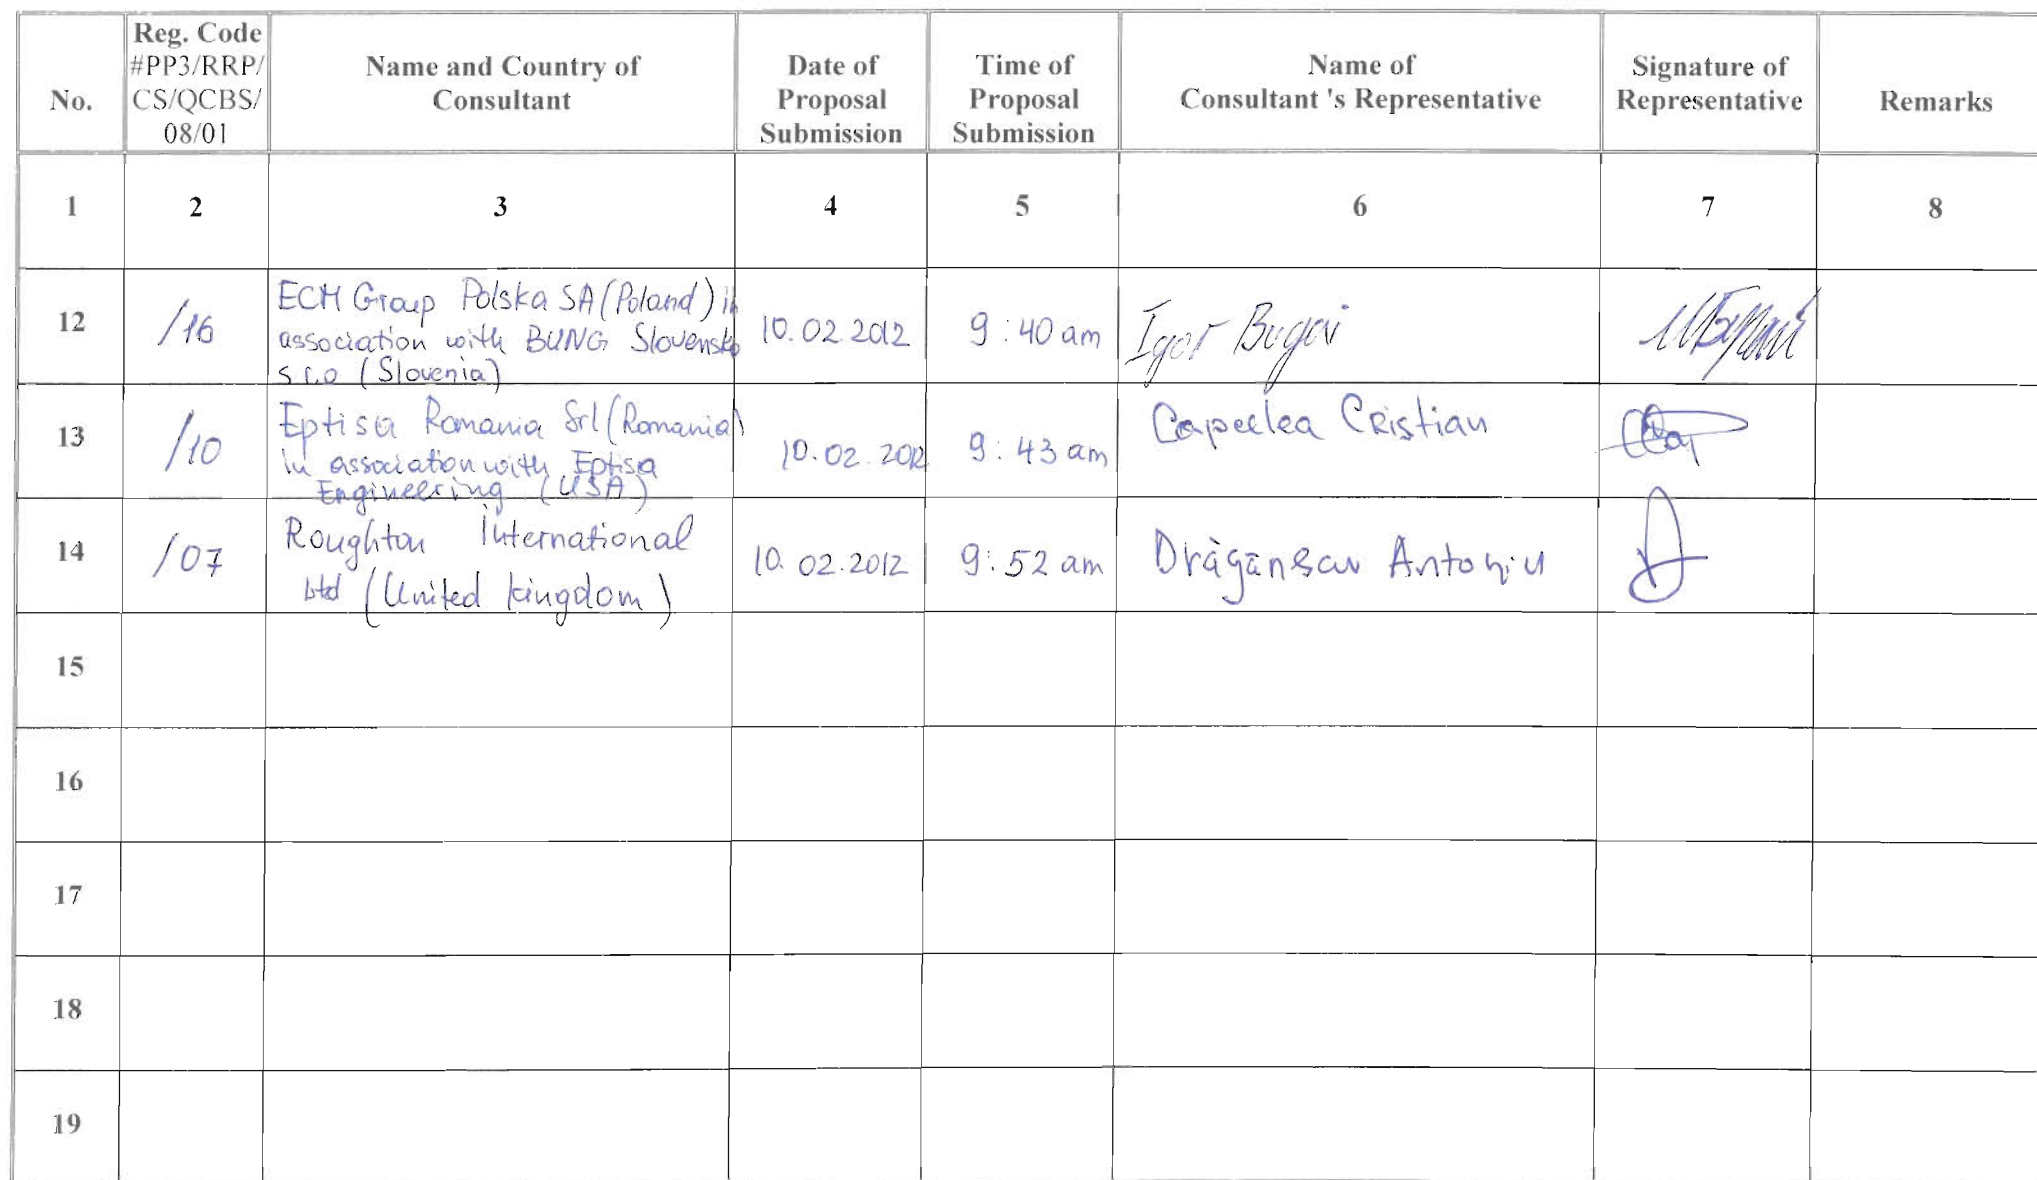 No.
Reg. Code
#PP3/RRP/
CS/QCBS/
08/01
Name and Country of
Consultant
Date of
Proposal
Submission
Time of
Proposal
Submission
Name of
Consultant 's Representative
Signature of
Representative
Remarks
1 2 3 4 5 6 7 8
12
/16
ECM Group Polska SA (Poland) in
association with BUNG Slovensko
s.r.o (Slovenia)
10.02.2012
9:40 am
Igor Bugai
13
/10
Eptisa Romania Srl (Romania)
in association with Eptisa
Engineering (USA)
10.02.2012
9:43 am
Cristian
14
/07
Roughton International
Ltd (United kingdom)
10.02.2012
9:52 am
15
16
17
18
19